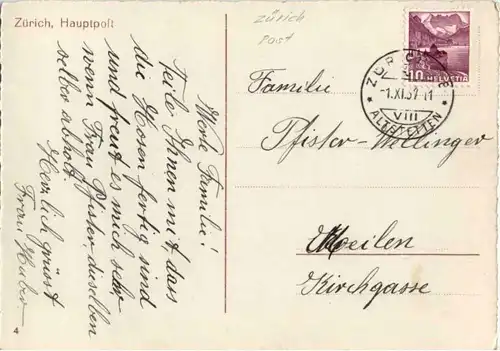 Zürich, Hauptpost
Werte Familie!
Teile Ihnen mit dass
die Hosen fertig sind
und freut es mich sehr
wenn Frau Pfister dieselben
selber abholt.
Herzlich grüsst
Frau Huber
4
Zürich
Post
HELVETIA
10
ZÜRICH
-1.XI.37-11
VIII
ALTSTETTEN
Familie
Pfister-Wellinger
Meilen
Kirchgasse